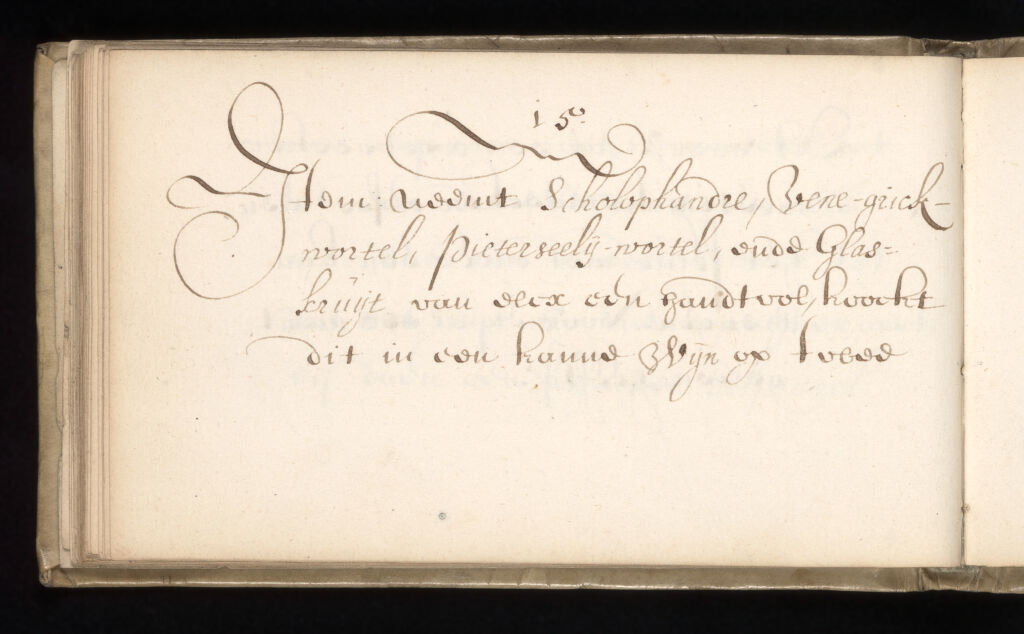 15.
Item: neemt Scholophandre, Vene-grick-
wortel, pieterseelÿ-wortel, ende Glas-
kruÿt van elcx een handtvol, koockt
dit in een kanne Wÿn op twee